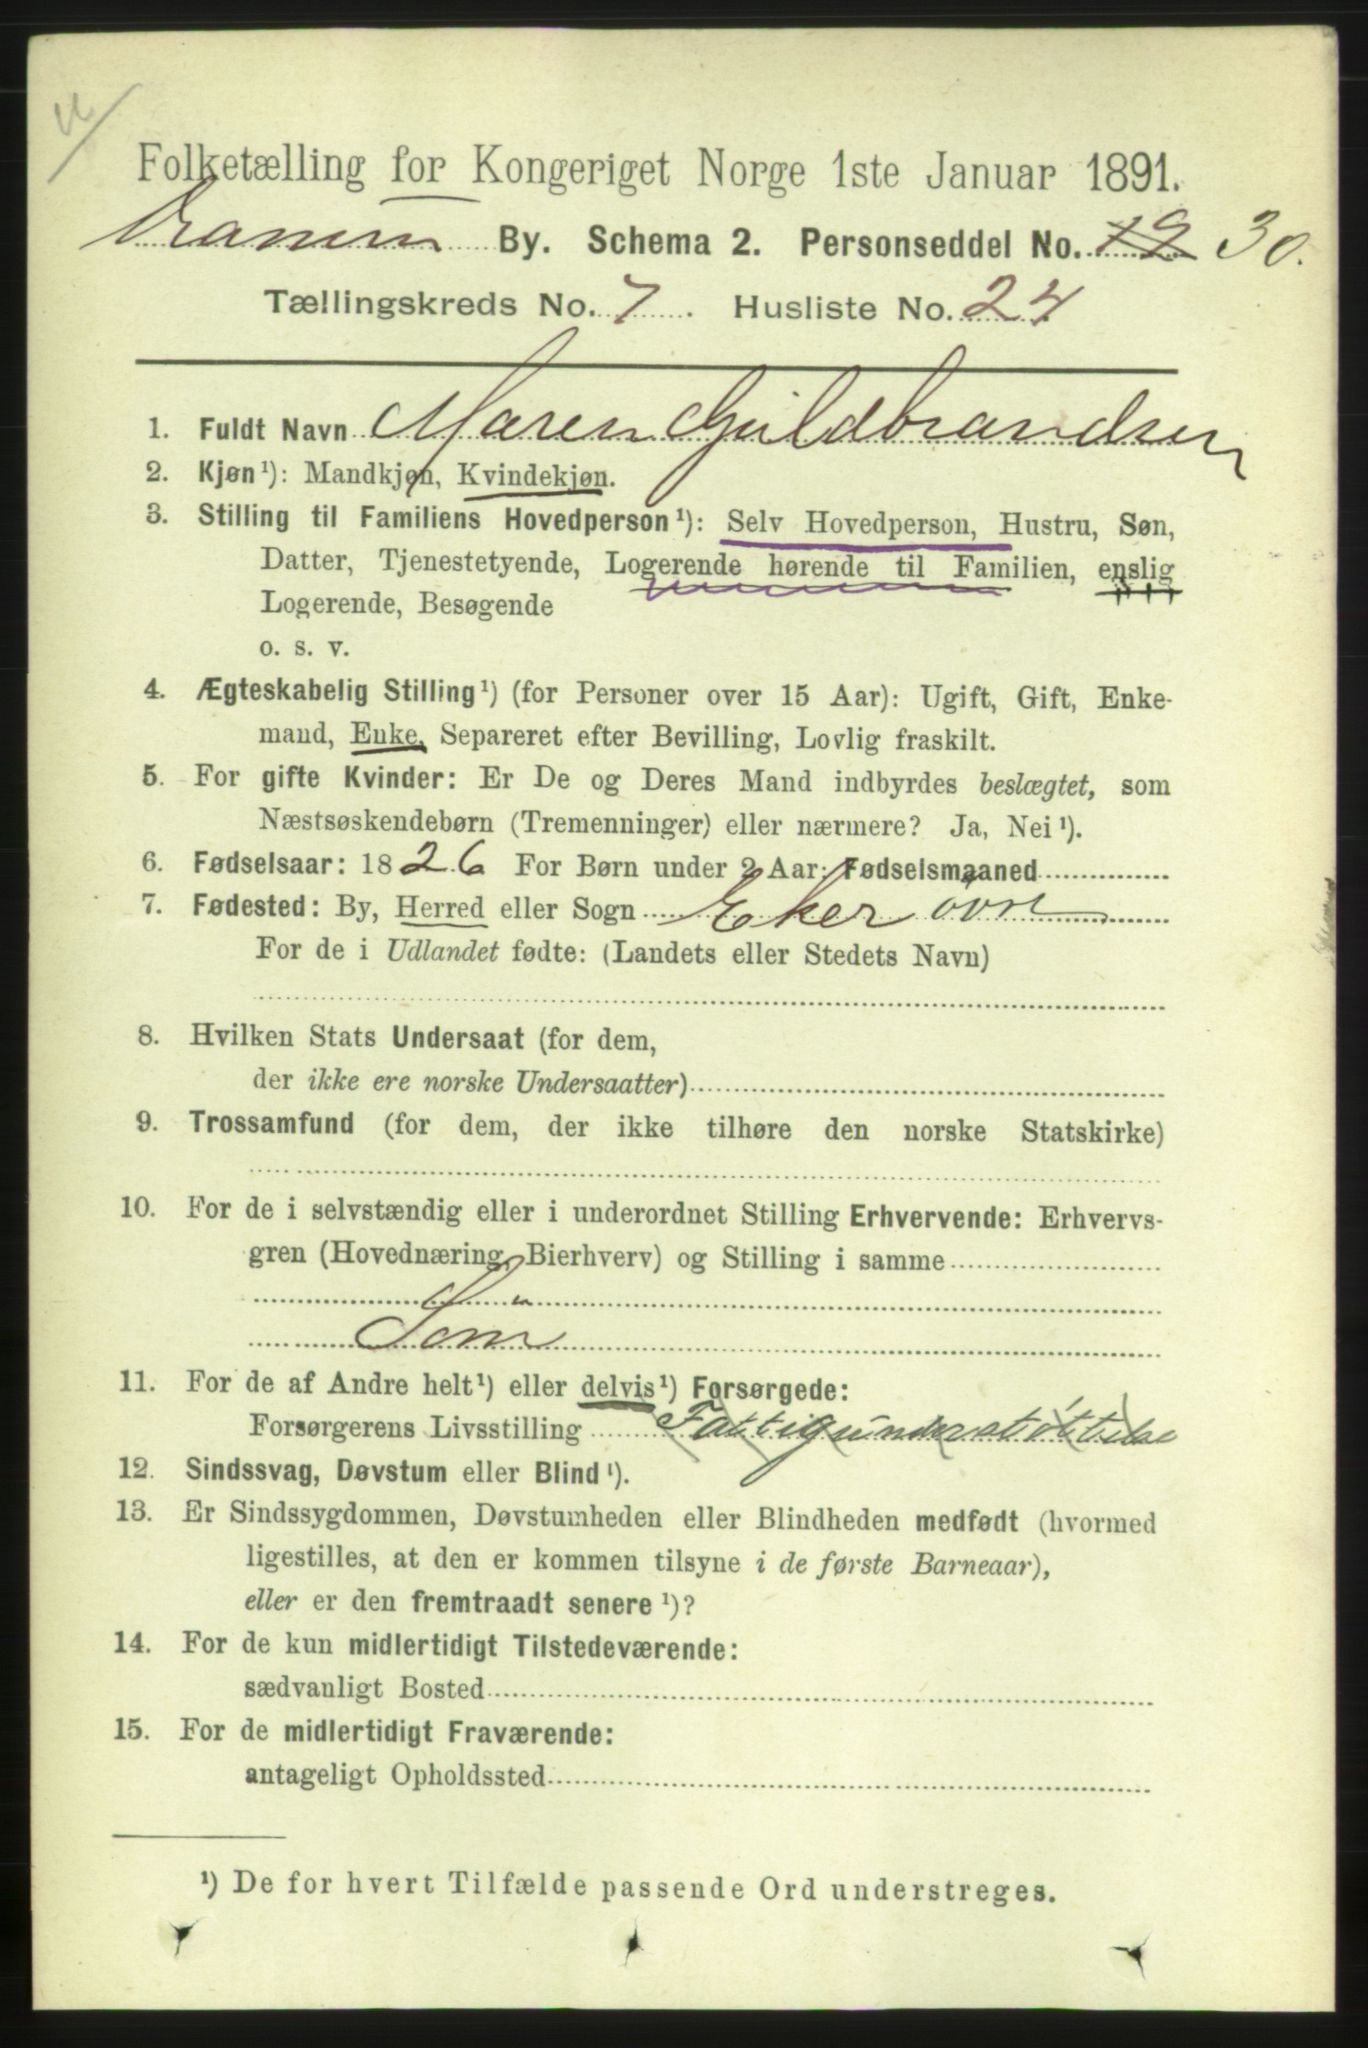 Folketælling for Kongeriget Norge 1ste Januar 1891.
By. Schema 2. Personseddel No. 19 30.
Tællingskreds No. 7. Husliste No. 24
1. Fuldt Navn Maren Guldbrandsen
2. Kjøn¹): Mandkjøn, Kvindekjøn.
3. Stilling til Familiens Hovedperson¹): Selv Hovedperson, Hustru, Søn,
Datter, Tjenestetyende, Logerende hørende til Familien, enslig
Logerende, Besøgende
o. s. v.
4. Ægteskabelig Stilling¹) (for Personer over 15 Aar): Ugift, Gift, Enke-
mand, Enke, Separeret efter Bevilling, Lovlig fraskilt.
5. For gifte Kvinder: Er De og Deres Mand indbyrdes beslægtet, som
Næstsøskendebørn (Tremenninger) eller nærmere? Ja, Nei¹).
6. Fødselsaar: 1826 For Børn under 2 Aar: Fødselsmaaned
7. Fødested: By, Herred eller Sogn Eker øvre
For de i Udlandet fødte: (Landets eller Stedets Navn)
8. Hvilken Stats Undersaat (for dem,
der ikke ere norske Undersaatter)
9. Trossamfund (for dem, der ikke tilhøre den norske Statskirke)
10. For de i selvstændig eller i underordnet Stilling Erhvervende: Erhvervs-
gren (Hovednæring, Bierhverv) og Stilling i samme
11. For de af Andre helt¹) eller delvis¹) Forsørgede:
Forsørgerens Livsstilling Fattigunderstøttelse
12. Sindssvag, Døvstum eller Blind¹).
13. Er Sindssygdommen, Døvstumheden eller Blindheden medfødt (hvormed
ligestilles, at den er kommen tilsyne i de første Barneaar),
eller er den fremtraadt senere¹)?
14. For de kun midlertidigt Tilstedeværende:
sædvanligt Bosted
15. For de midlertidigt Fraværende:
antageligt Opholdssted
¹) De for hvert Tilfælde passende Ord understreges.